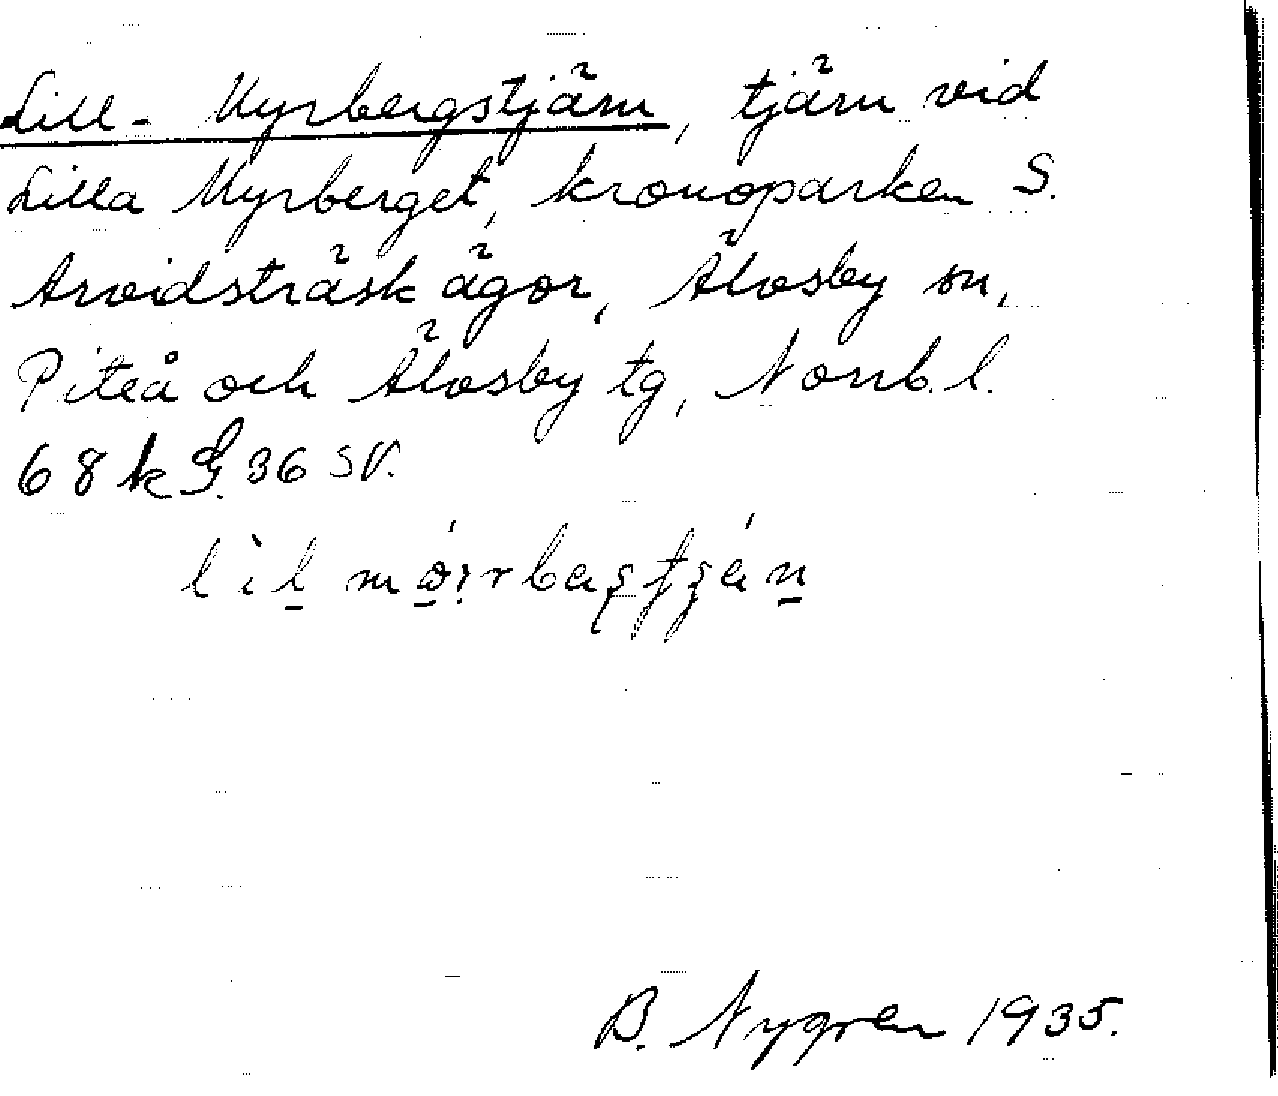 Lill-Myrbergstjärn, tjärn vid
Lilla Myrberget, kronoparken S.
Arvidsträsk ägor, Älvsby sn,
Piteå och Älvsby tg, Norrb. l.
68 k G. 36 SV.
B. Nygren 1935.